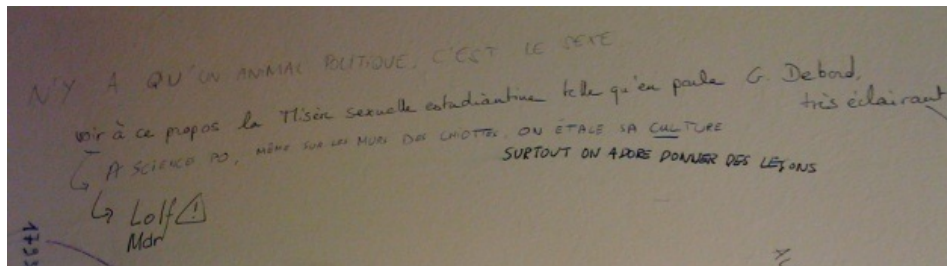 N'Y A QU'UN ANIMAL POLITIQUE, C'EST LE SEXE
voir à ce propos la Misère sexuelle estudiantine telle qu'en parle G. Debord,
très éclairant
A SCIENCE PO, MÊME SUR LES MURS DES CHIOTTES, ON ÉTALE SA CULTURE
SURTOUT ON ADORE DONNER DES LEÇONS
Lolf
Mdr